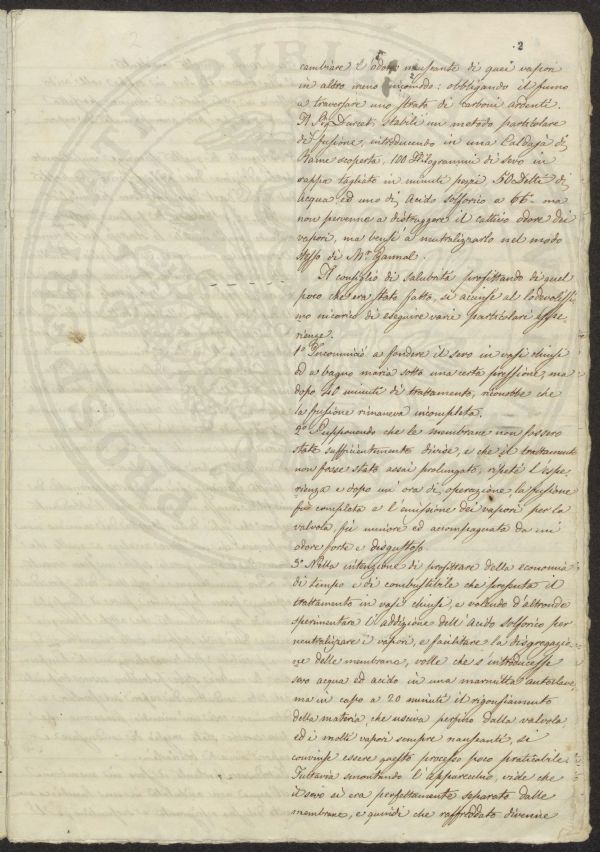 2
cambiare l'odore nauseante di quei vapori
in altro meno incomodo: obbligando il fumo
a traversare uno strato di carboni ardenti.
Il Sig. Darcet; stabilì un metodo particolare
di fusione, introducendo in una Caldaja di
Rame scoperta, 100 Kilogrammi di sevo in
rappa tagliato in minuti pezzi, 50 detti di
acqua ed uno di Acido solforico a 66.- ma
non pervenne a distruggere il cattivo odore dei
vapori, ma bensì a neutralizzarlo nel modo
stesso di Mr. Gannal.
Il consiglio di salubrità profittando di quel
poco che era stato fatto, si accinse al lodevolissi
mo incarico di eseguire varie particolari espe
rienze.
1.o Incominciò a fondere il sevo in vasi chiusi
ed a bagno maria sotto una certa pressione, ma
dopo 40 minuti di trattamento, riconobbe che
la fusione rimaneva incompleta.
2.o Supponendo che le membrane non fossero
state sufficientemente divise, e che il trattamento
non fosse stato assai prolungato, ripetè l'espe
rienza e dopo un' ora di operazione la fusione
fu completa e l'emissione dei vapori per la
valvola, fu minore ed accompagnata da un
odore forte e disgustoso
3.o Nella intenzione di profittare della economia
di tempo e di combustibile che presenta il
trattamento in vasi chiusi, e volendo d'altronde
sperimentare l'addizione dell'Acido solforico per
neutralizare i vapori, e facilitare la disgregazio
ne delle membrane, volle che s'introducesse
sevo acqua ed acido in una marmitta autoclave,
ma in capo a 20 minuti il rigonfiamento
della materia, che usciva perfino dalla valvola,
ed i molti vapori sempre nauseanti, si
convinse essere questo processo poco praticabile.
Tuttavia smontando l'apparecchio, vide che
il sevo si era perfettamente separato dalle
membrane, e quindi che raffreddato divenne